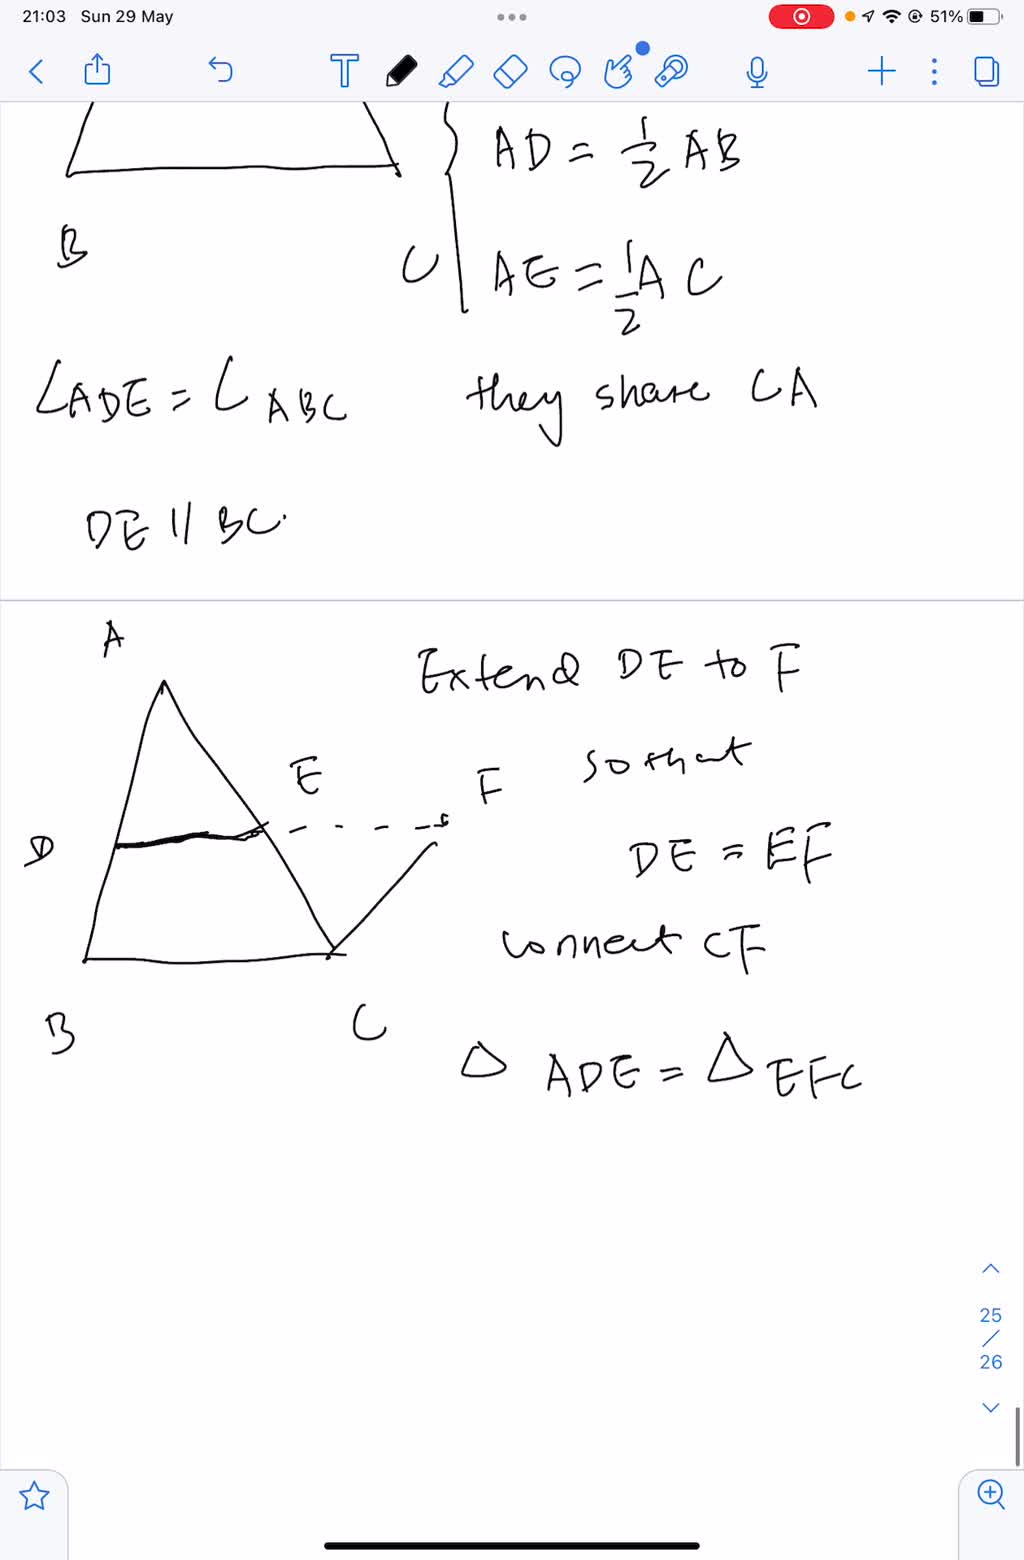 21:03 Sun 29 May
51%
T
AD = 1/2 AB
B
C
AE = 1/2 AC
∠ADE = ∠ABC
they share ∠A
DE // BC.
A
Extend DE to F
E
F
so that
D
DE = EF
connect CF
B
C
△ ADE = △ EFC
25
/
26